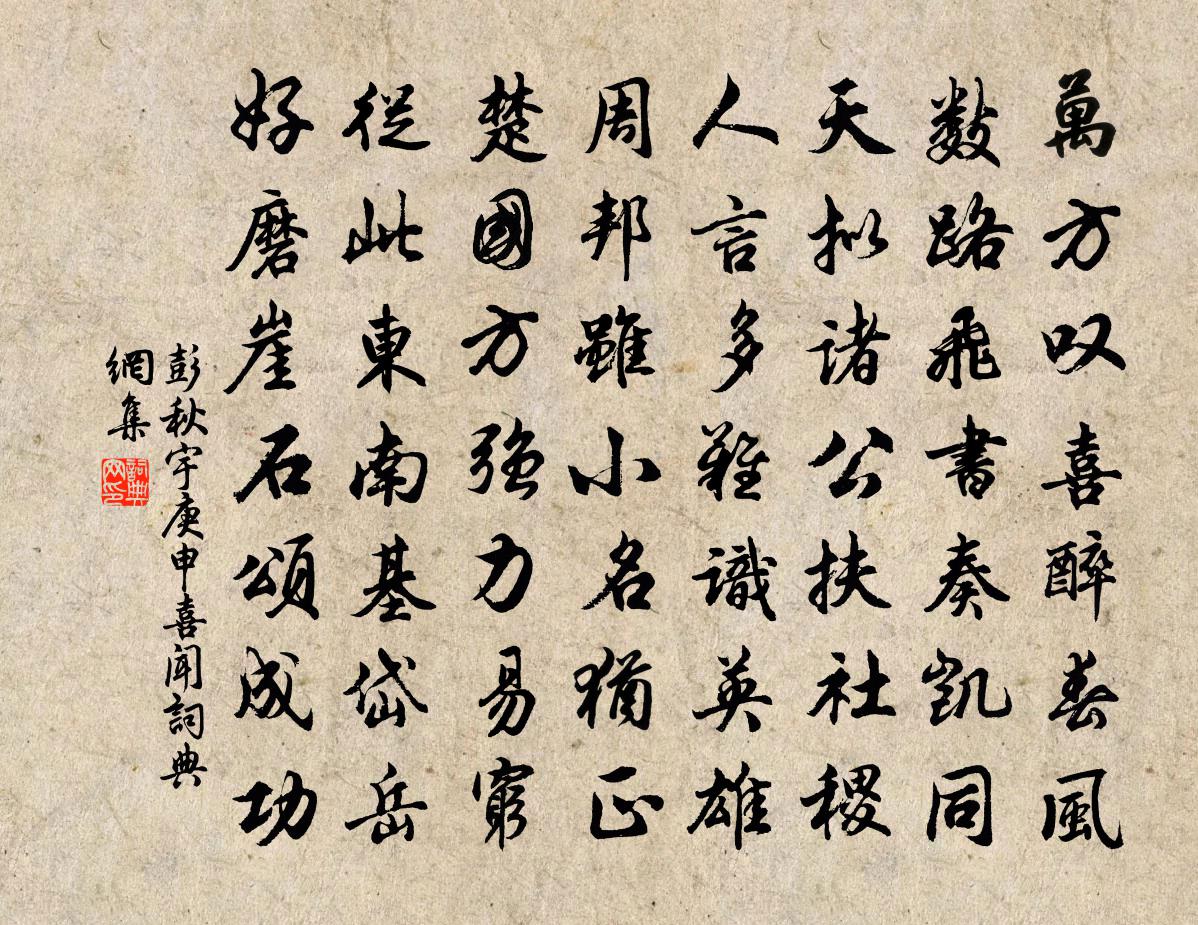 萬方叹喜醉春風
数路飛書奏凱同
天拟諸公扶社稷
人言多難識英雄
周邦雖小名猶正
楚國方強力易窮
從此東南基岱岳
好磨崖石頌成功
彭秋宇庚申喜聞詞典
網集
詞典
网印